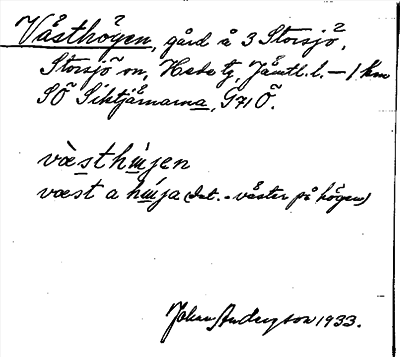 Västhögen, gård å 3 Storsjö²,
Storsjö sn, Hede tg, Jämtl. l. – 1 km
SÖ Siktjärnarna, G71 Ö.
væsthɯjen
væst a hɯja (dat. = väster på högen)
Johan Anderzson 1933.